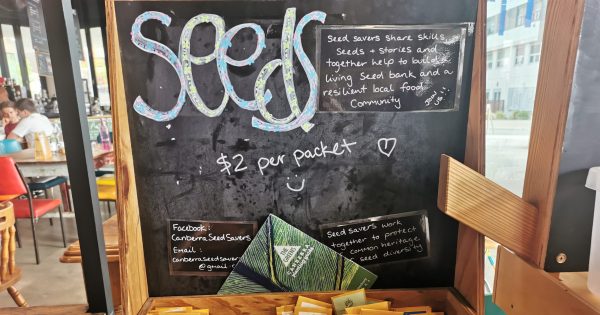 Seeds
Seed savers share skills,
Seeds + stories and
together help to build a
living Seed bank and a
resilient local food
Community
Join us!!
$2 per packet ♡
Facebook:
Canberra Seed Savers
Email:
canberraseedsavers
@gmail.c
Seed savers work
together to protect
common heritage
seed diversity